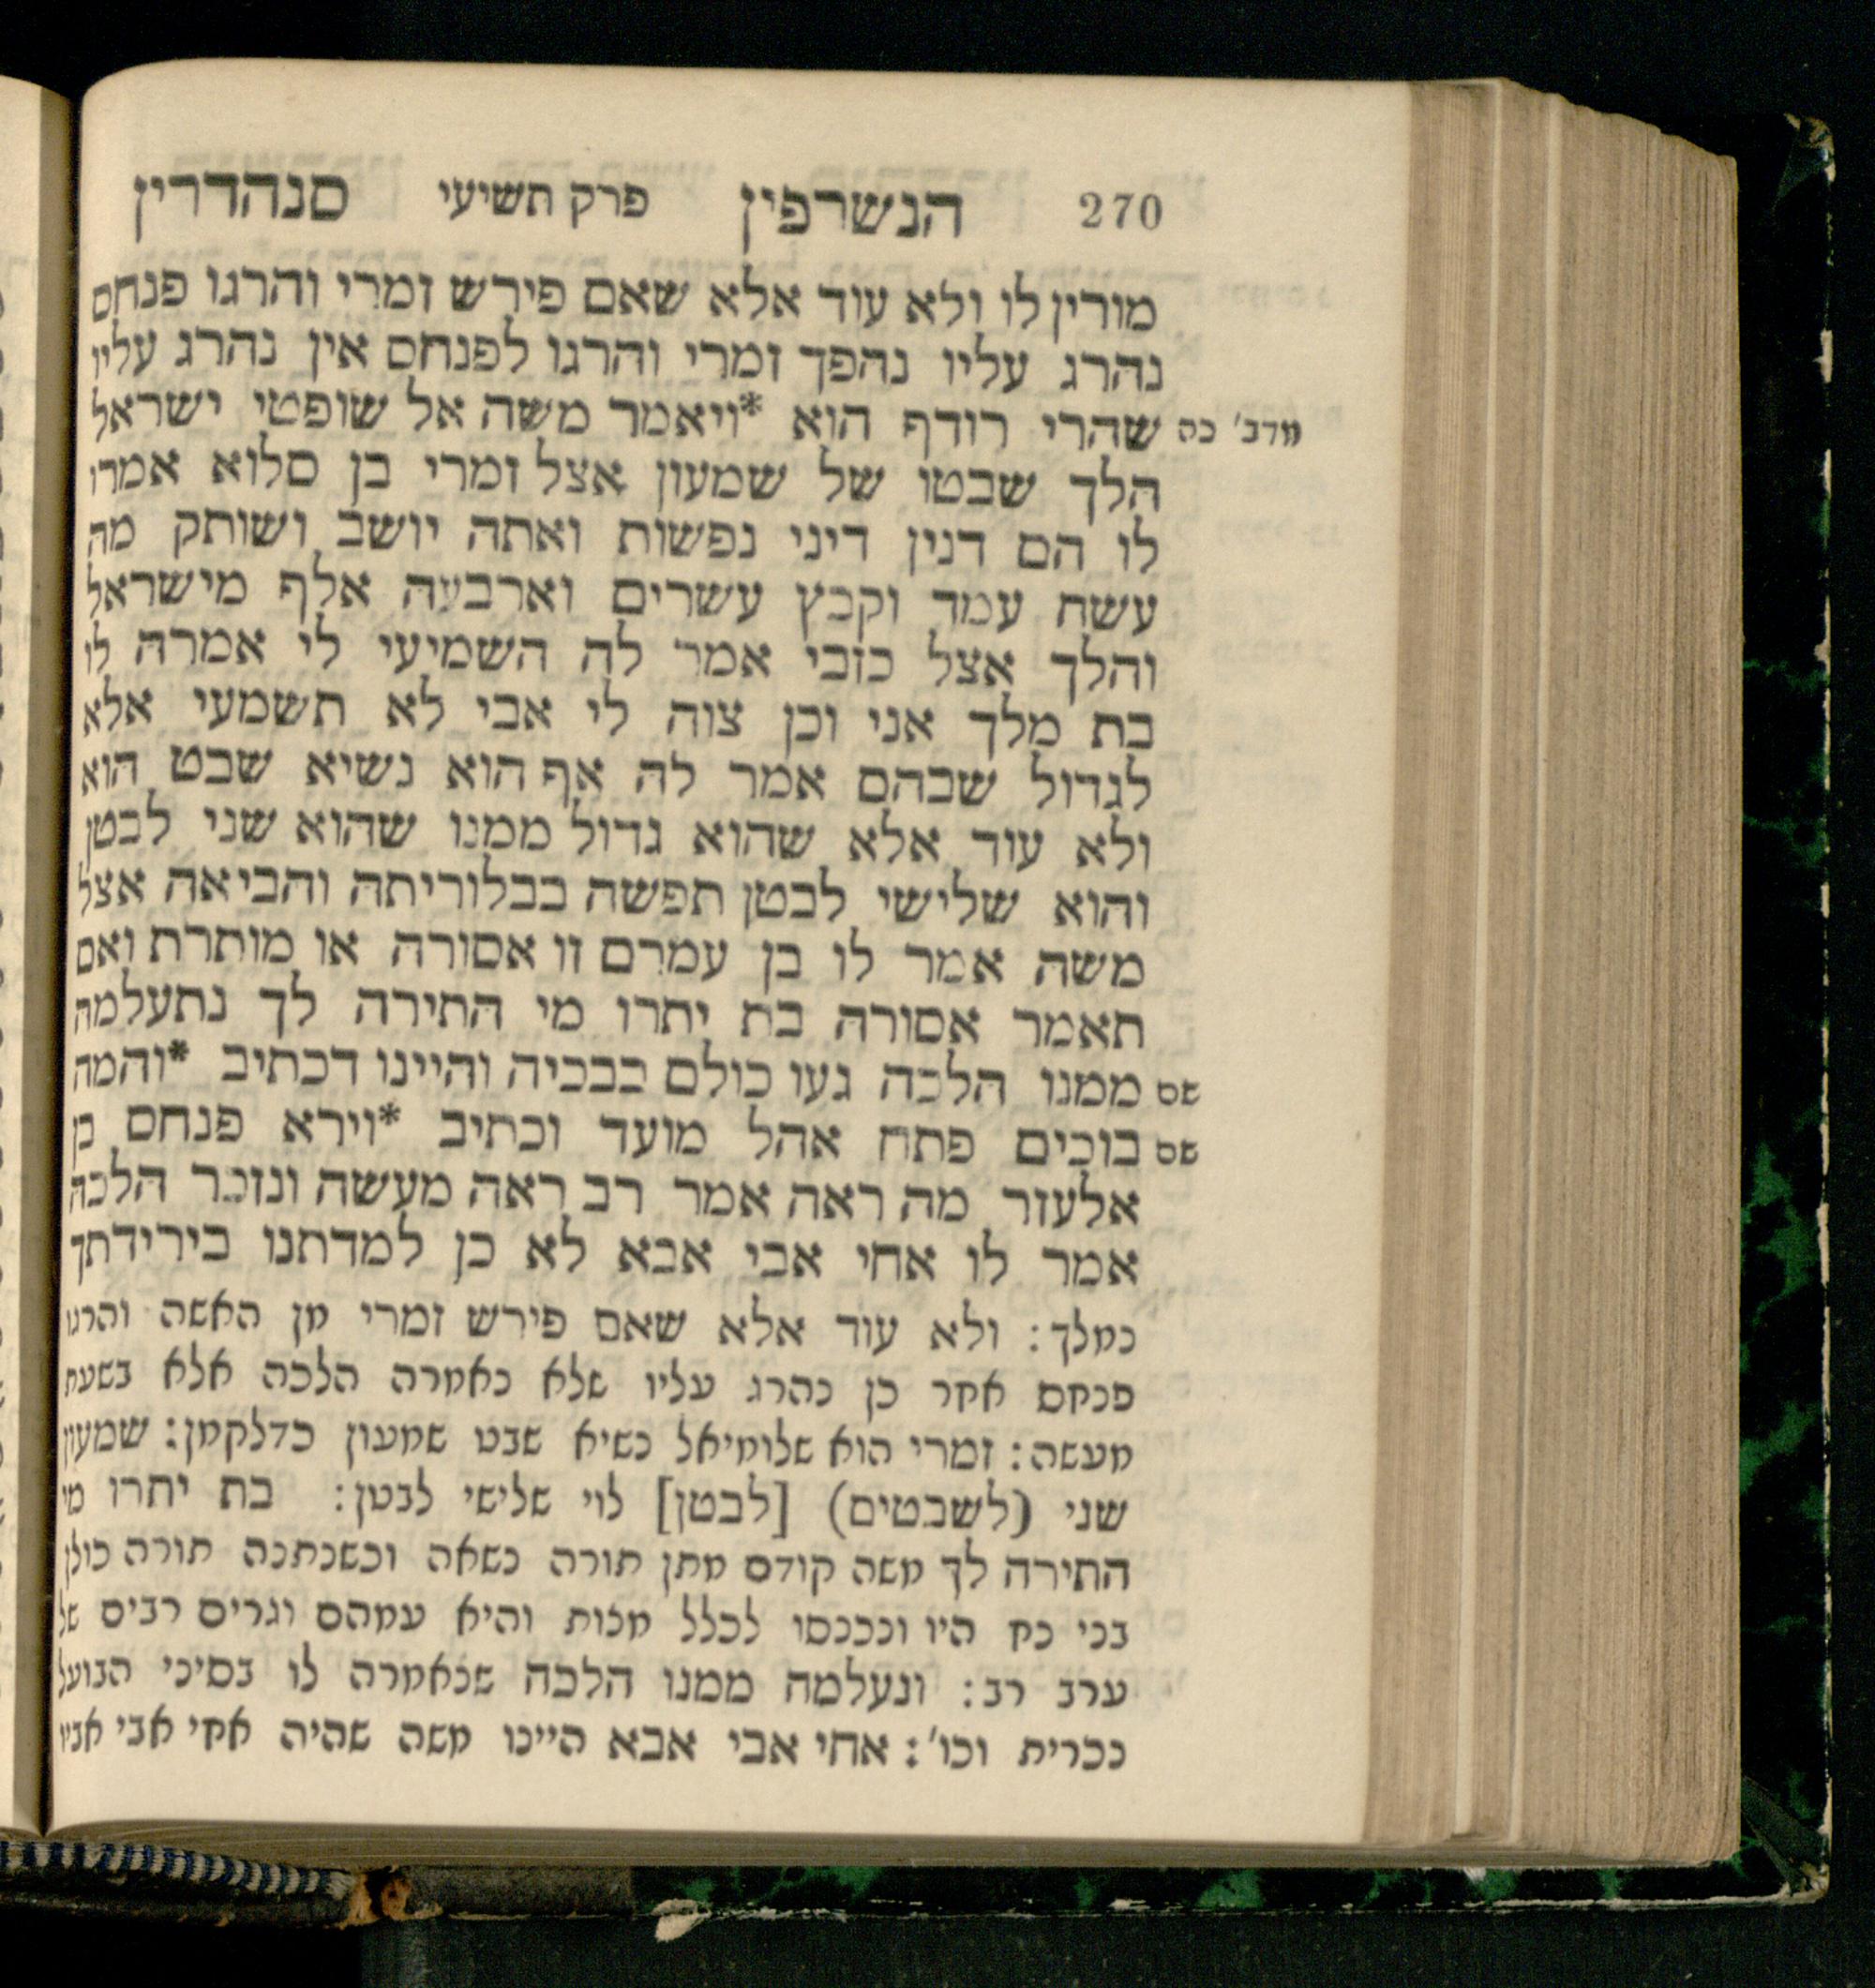 270 הנשרפין פרק תשיעי סנהדרין
מורין לו ולא עוד אלא שאם פירש זמרי והרגו פנחס
נהרג עליו נהפך זמרי והרגו לפנחס אין נהרג עליו
מדב' כה שהרי רודף הוא *ויאמר משה אל שופטי ישראל
הלך שבטו של שמעון אצל זמרי בן סלוא אמרו
לו הם דנין דיני נפשות ואתה יושב ושותק מה
עשה עמד וקבץ עשרים וארבעה אלף מישראל
והלך אצל כזבי אמר לה השמיעי לי אמרה לו
בת מלך אני וכן צוה לי אבי לא תשמעי אלא
לגדול שבהם אמר לה אף הוא נשיא שבט הוא
ולא עוד אלא שהוא גדול ממנו שהוא שני לבטן
והוא שלישי לבטן תפשה בבלוריתה והביאה אצל
משה אמר לו בן עמרם זו אסורה או מותרת ואם
תאמר אסורה בת יתרו מי התירה לך נתעלמה
שם ממנו הלכה געו כולם בבכיה והיינו דכתיב *והמה
שם בוכים פתח אהל מועד וכתיב *וירא פנחס בן
אלעזר מה ראה אמר רב ראה מעשה ונזכר הלכה
אמר לו אחי אבי אבא לא כן למדתנו בירידתך
כמלך: ולא עוד אלא שאם פירש זמרי מן האשה והרגו
פנחס אחר כן נהרג עליו שלא נאמרה הלכה אלא בשעת
מעשה: זמרי הוא שלומיאל נשיא שבט שמעון כדלקמן: שמעון
שני (לשבטים) [לבטן] לוי שלישי לבטן: בת יתרו מי
התירה לך משה קודם מתן תורה נשאה וכשנתנה תורה כולן
בני נח היו ונכנסו לכלל מצות והיא עמהם וגרים רבים של
ערב רב: ונעלמה ממנו הלכה שנאמרה לו בסיני הבועל
נכרית וכו': אחי אבי אבא היינו משה שהיה אחי אבי אביו